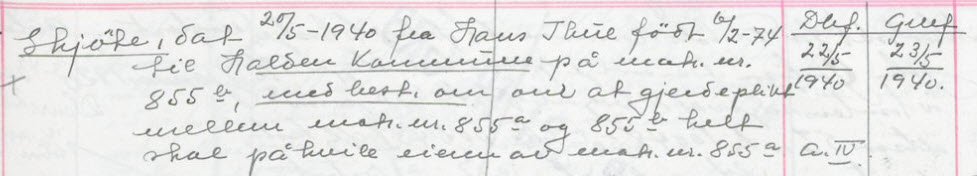 Skjöte, dat 20/5-1940 fra Hans Thue födt 6/2-74 Dbf. Guf
til Halden Kommune på matr. nr. 22/5 23/5
855 b, med best. om at gjerdeplikt 1940 1940.
mellem matr. nr. 855 a og 855 b helt
skal påhvile eieren av matr. nr. 855 a a. IV.